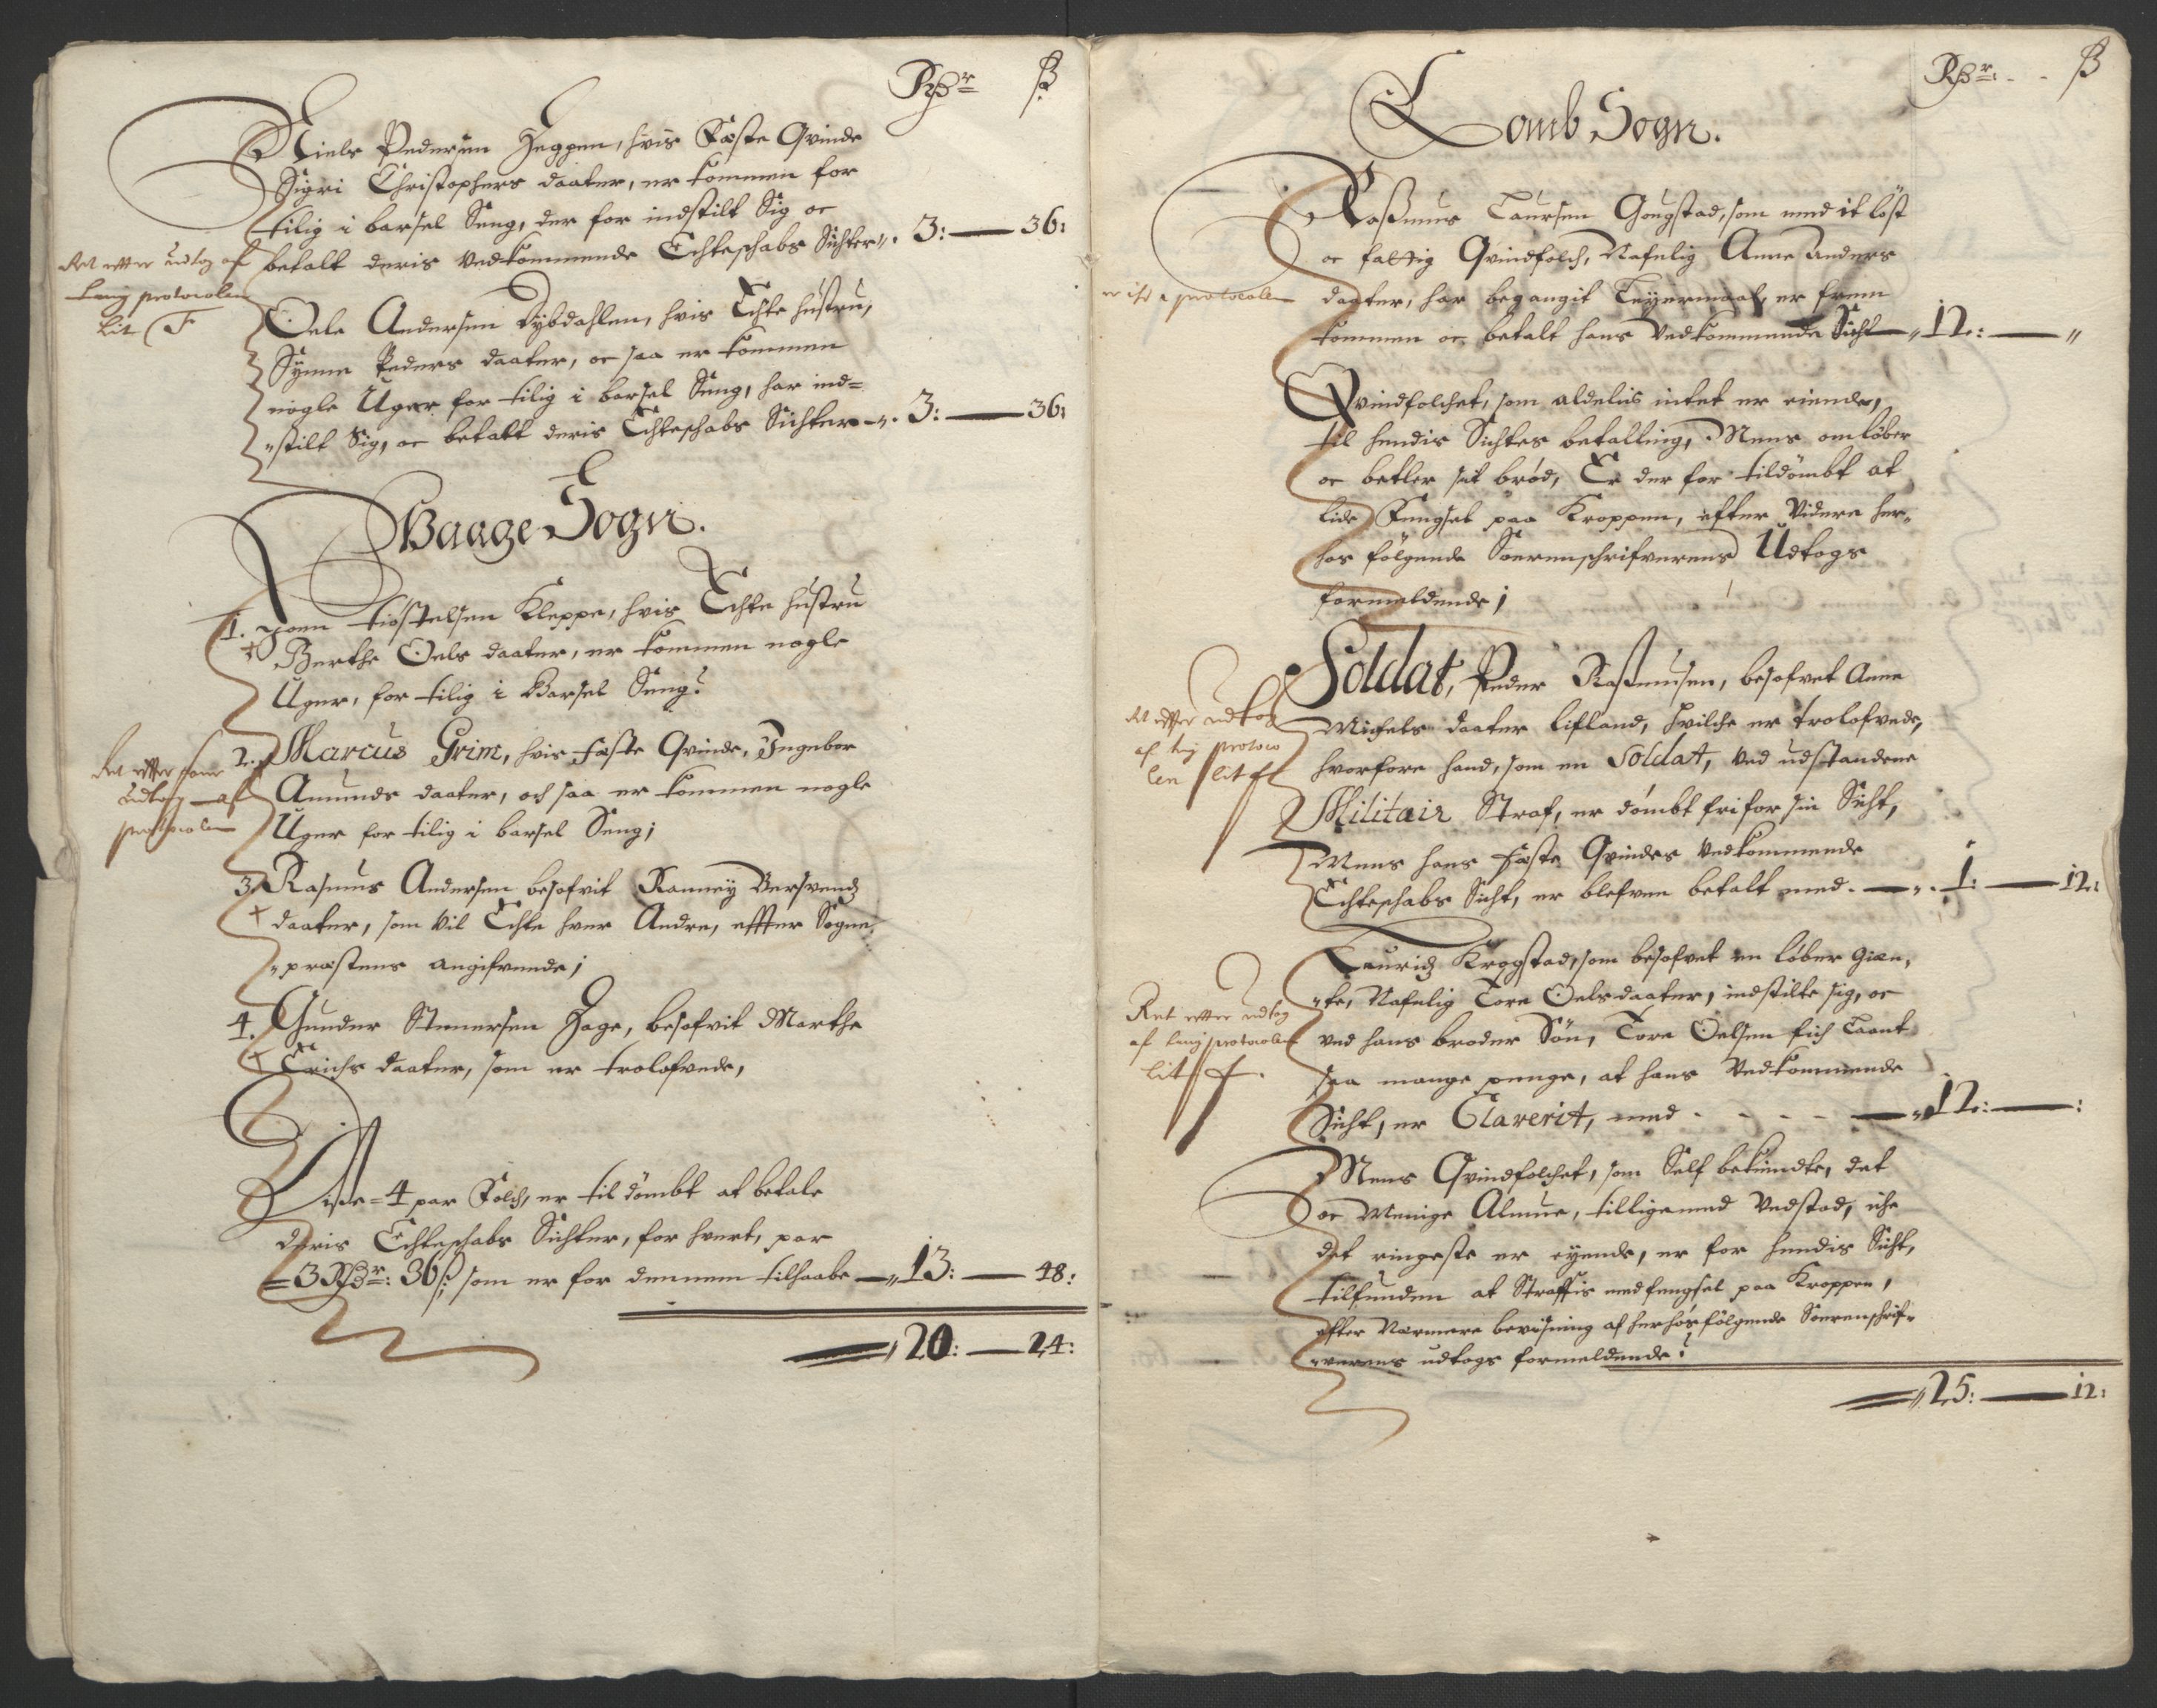 Rdr ß
Niels Pedersen Heggen, hvis Fæste Qvinde
Sigri Christophers daater, er kommen for
tilig i barsel Seng, der for indstilt Sig oc
betalt deris vedkommende Echteschabs Sichter 3: 36:
Ret efter udtog af
ting protocolen
Lit F
Oele Andersen Dybdahlen, hvis Echte hustru,
Synne Peders daater, oc saa er kommen
nogle Uger for tilig i barsel Seng, har ind=
stilt Sig, oc betalt deris Echteschabs Sichter 3: 36:
Waage Sogn.
1. Joen Kleppe, hvis Echte hustru
Berthe Oels daater, er kommen nogle
Uger, for tilig i Barsel Seng;
2. Marcus Grim, hvis fæste Qvinde, Ingebor
Amunds daater, och saa er kommen nogle
Uger for tilig i barsel Seng;
Ret efter
udtog af
protocolen
3. Rasmus Andersen besofvit Ranney
daater, som vil Echte hver Andre, effter Sogne
præstens angifvende;
4. Gunder Stenersen Hage, besofvit Marthe
Erichs daater, som er trolofvede,
Disse=4 par Folch, er til dömbt at betale
deris Echteschabs Sichter, for hvert, par
=3 Rdr: 36 ß; som er for dennem tilhaabe 13: 48:
20: 24:
Rdr: ß
Lomb Sogn.
Rasmus Laursen Gougstad, som med it löst
oc fattig Qvindfolch, Nafnlig Anne Anders
daater, har begangit Leyermaal, er frem
kommen oc betalt hans vedkommende Sicht 12: "
protocolen
Qvindfolchet, som aldelis intet er eiende,
til hendis Sichtes betalling, Mens omløber
oc betler sit brød, Er der for tildömbt at
lide Fengsel paa Kroppen, efter videre her
hos følgende Soerenschrifverens Udtogs
formeldende;
Soldat, Peder Rasmusen, besofvet Anne
Michels daater Lifland, hvilche er trolofvede,
hvorfore hand, som en Soldat, ved udstandene
Militair Straf, er dömbt fri for sin Sicht,
Mens hans fæste Qvindes vedkommende
Echteschabs Sicht, er blefven betalt med 1: 12:
Ret effter udtog
af ting protoco
len lit f
Lauridz Krogstad, som besofvet en løber Gien,
te, Nafnlig Tore Oels daater, indstilte sig, oc
ved hans broder Søn, Tore Oelsen fich Laant
saa mange penge, at hans vedkommende
Sicht, er Clarerit, med 12: :
Ret efter udtog
af ting protocolen
lit f.
Mens Qvindfolchet, som Self bekiendte, det
oc Menige Almue, tillige med vedstod, iche
det ringeste er eyende, er for hendis Sicht,
tilfunden at Straffis med fengsel paa Kroppen,
efter Nærmere bevisning af herhos følgende Soerenschrif
verens udtogs formeldende;
25: 12: